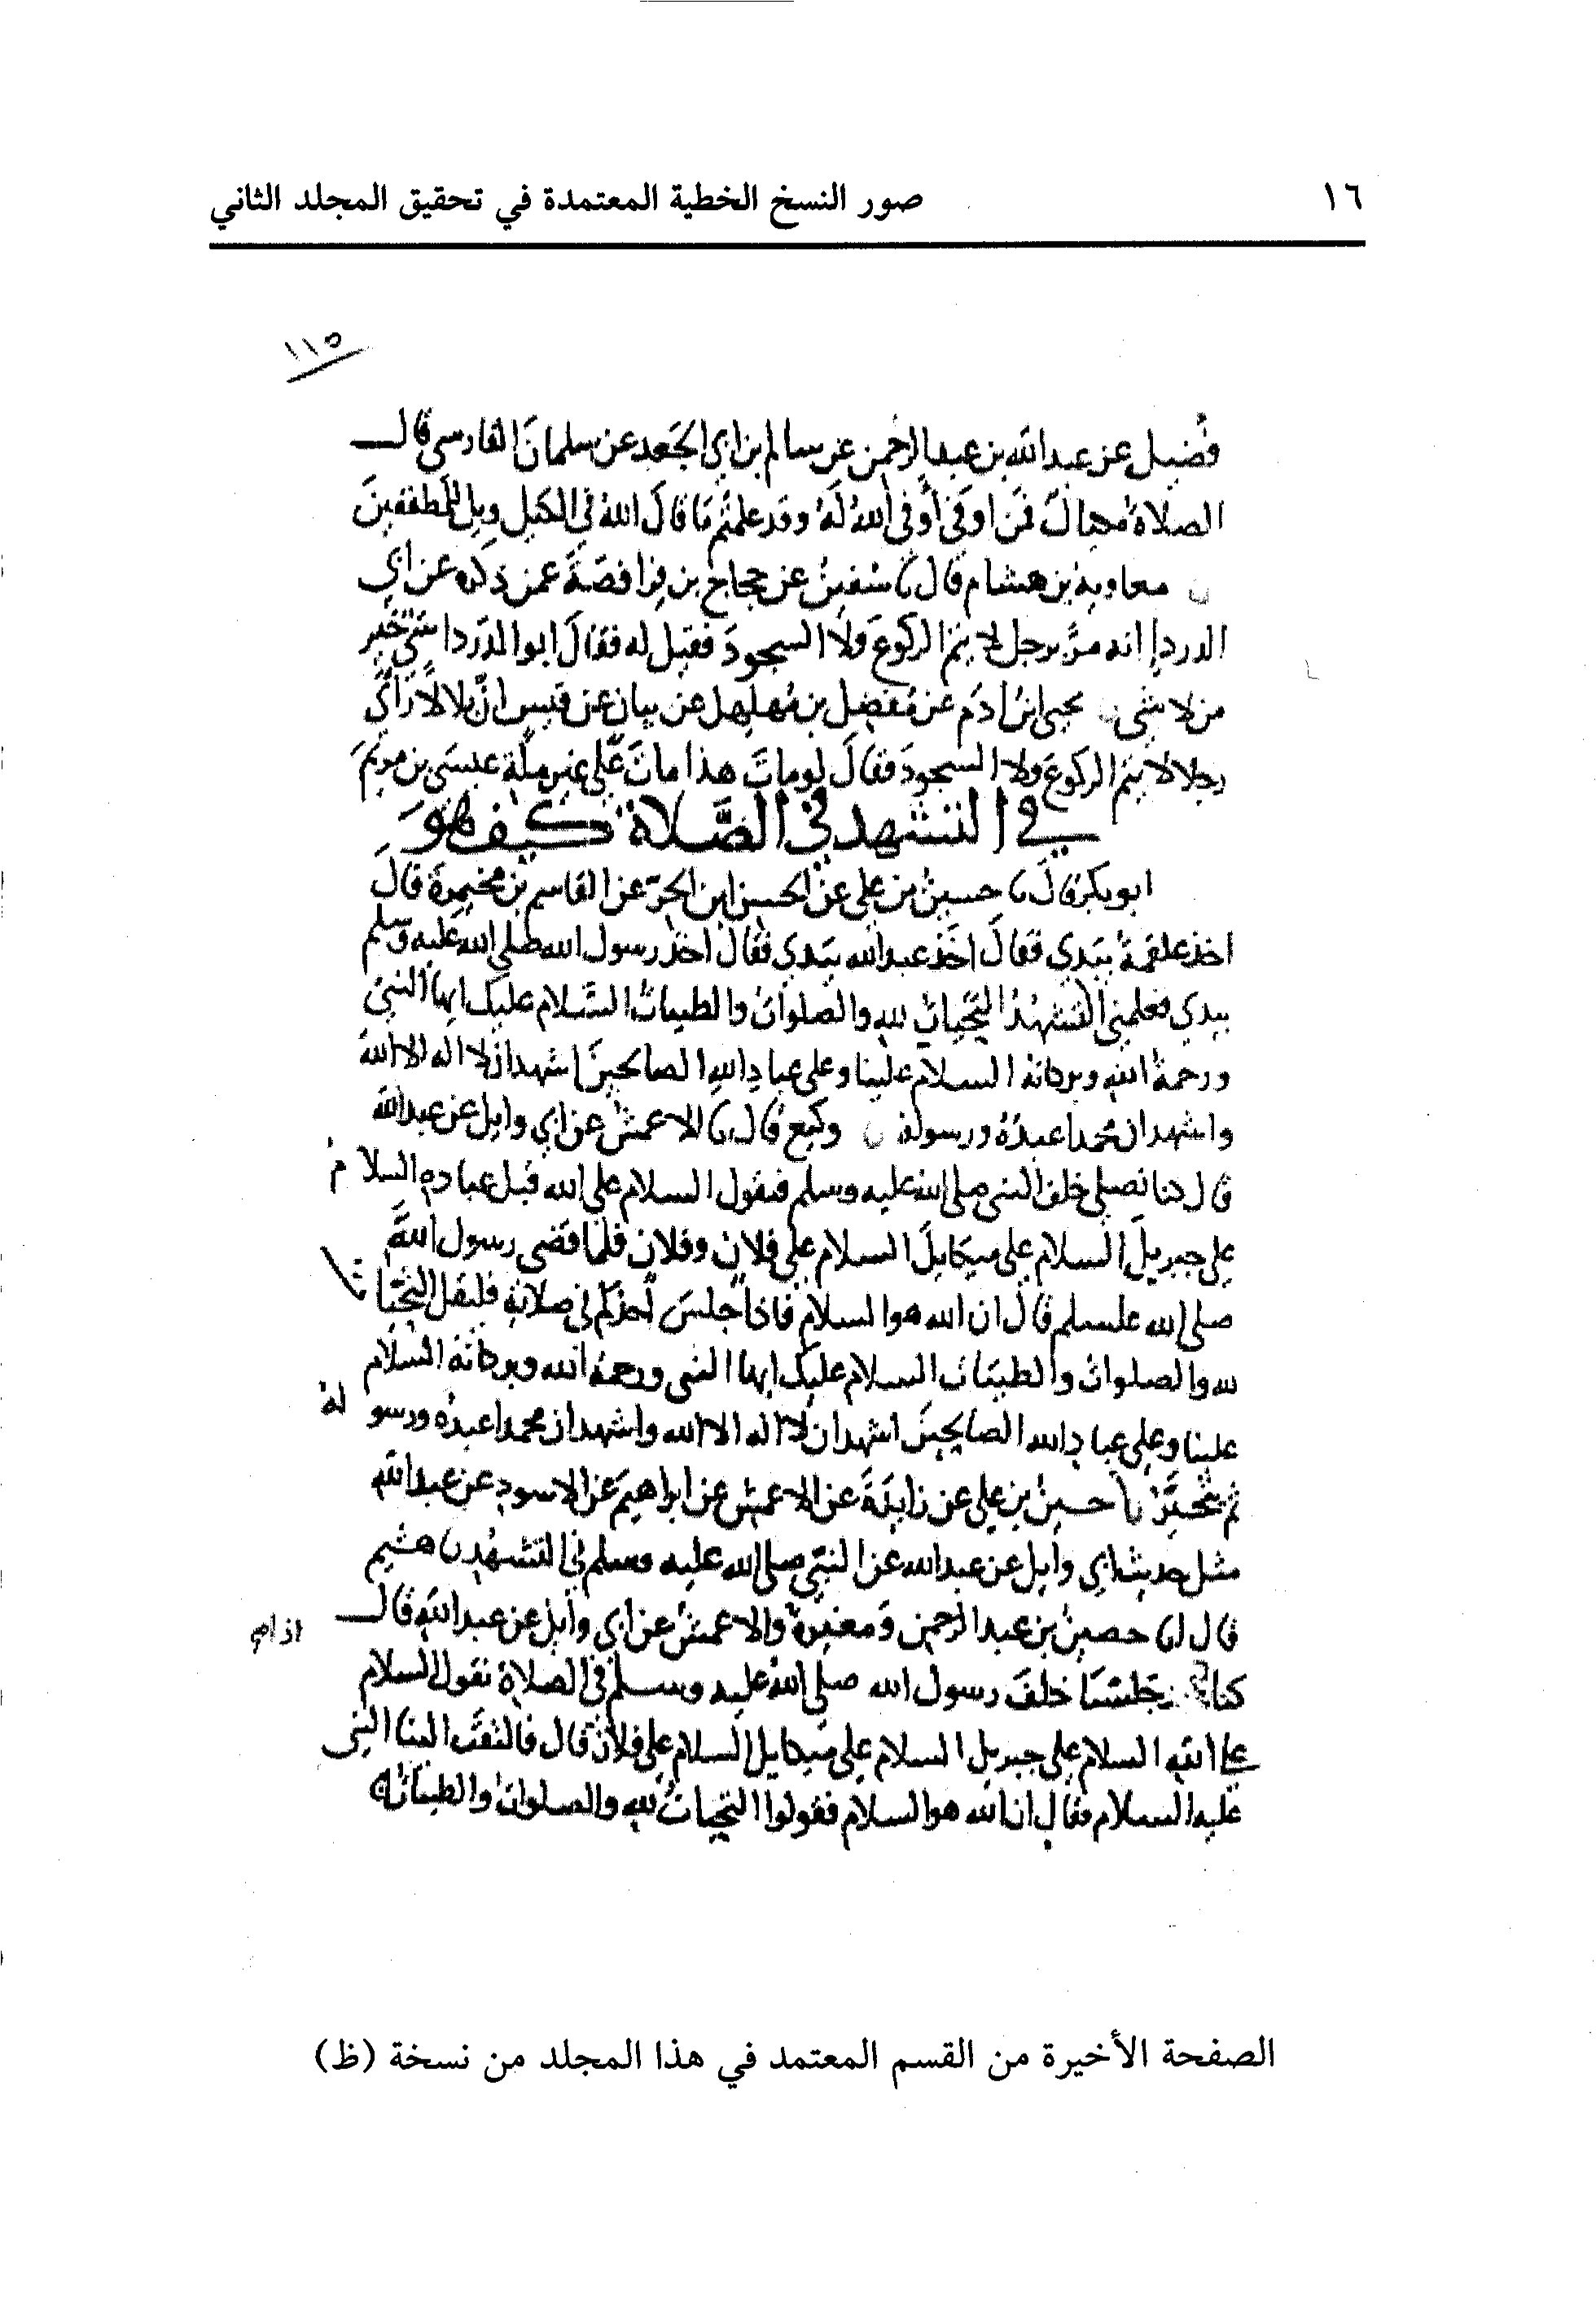 ١٦
صور النسخ الخطية المعتمدة في تحقيق المجلد الثاني
١١٥
فضيل عن عبد الله بن عبد الرحمن عن سالم بن ابي الجعد عن سلمان الفارسي قال
الصلاة مكيال فمن اوفى أوفى الله له وقد علمتم ما قال الله في الكيل ويل للمطففين
معاوية بن هشام قال نا سفين عن حجاج بن فرافصة عمن ذكره عن ابي
الدرداء انه مر برجل لا يتم الركوع ولا السجود فقيل له فقال ابو الدردا شي خير
من لا شي نا يحيى ابن ادم عن مفضل بن مهلهل عن بيان عن قيس ان بلالا رأى
رجلا لا يتم الركوع ولا السجود فقال لو مات هذا مات على غير ملة عيسى بن مريم
في التشهد في الصلاة كيف هو
ابو بكر قال نا حسين بن علي عن الحسن ابن الحر عن القاسم بن مخيمرة قال
اخذ علقمة بيدي فقال اخذ عبد الله بيدي فقال اخذ رسول الله صلى الله عليه وسلم
بيدي فعلمني التشهد التحيات لله والصلوات والطيبات السلام عليك ايها النبي
ورحمة الله وبركاته السلام علينا وعلى عباد الله الصالحين اشهد ان لا اله الا الله
واشهد ان محمدا عبده ورسوله نا وكيع قال نا الاعمش عن ابي وايل عن عبد الله
قال كنا نصلي خلف النبي صلى الله عليه وسلم فنقول السلام على الله قبل عباده السلام
على جبريل السلام على ميكايل السلام على فلان وفلان فلما قضى رسول الله
صلى الله عليه وسلم قال ان الله هو السلام فاذا جلس أحدكم في صلاته فليقل التحيات
لله والصلوات والطيبات السلام عليك ايها النبي ورحمة الله وبركاته السلام
علينا وعلى عباد الله الصالحين اشهد ان لا اله الا الله واشهد ان محمدا عبده ورسوله
ثم يتخير نا حسين بن علي عن زايدة عن الاعمش عن ابراهيم عن الاسود عن عبد الله
مثل حديث ابي وايل عن عبد الله عن النبي صلى الله عليه وسلم في التشهد نا هشيم
قال انا حصين بن عبد الرحمن ومغيرة والاعمش عن ابي وايل عن عبد الله قال
كنا جلسنا خلف رسول الله صلى الله عليه وسلم في الصلاة نقول السلام
على الله السلام على جبريل السلام على ميكايل السلام على فلان قال فالتفت الينا النبي
عليه السلام فقال ان الله هو السلام فقولوا التحيات لله والصلوات والطيبات
الصفحة الأخيرة من القسم المعتمد في هذا المجلد من نسخة (ظ)